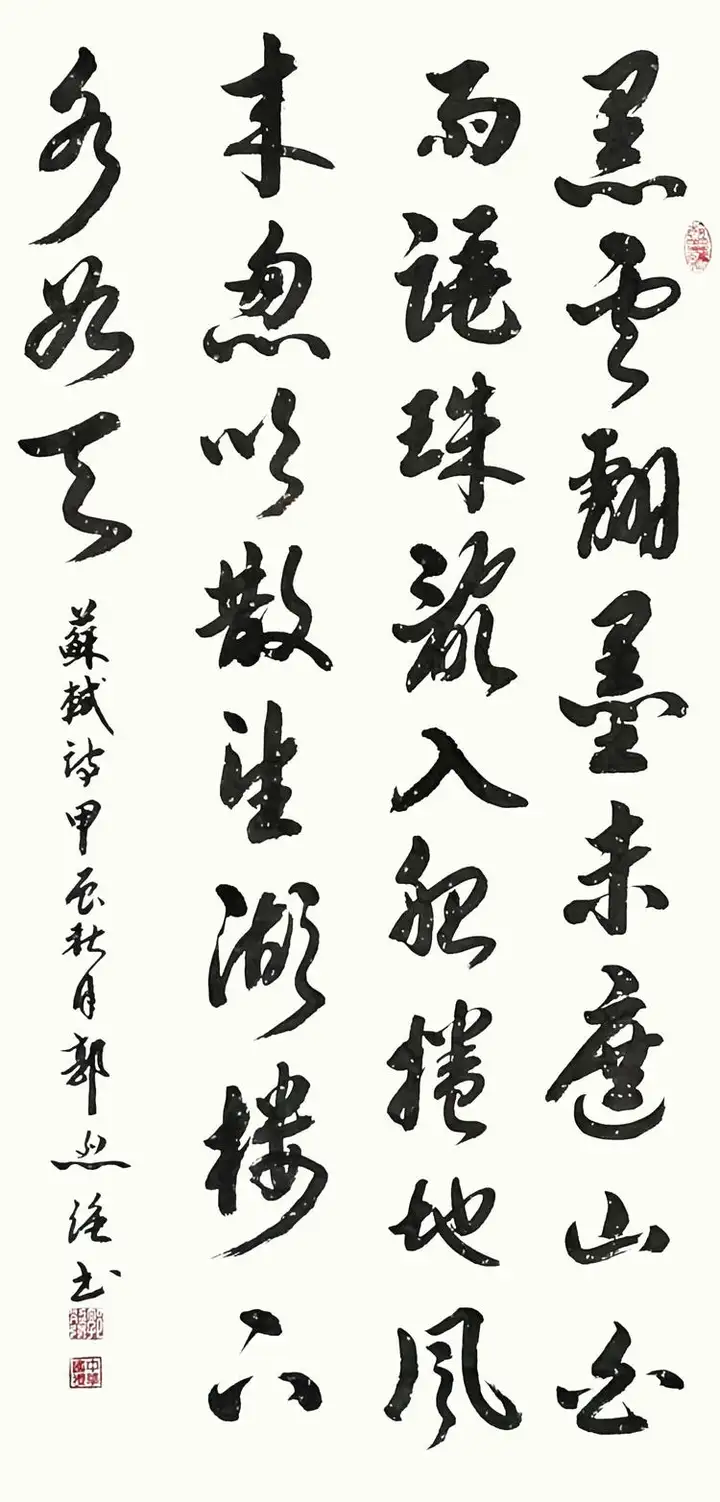 黑雲翻墨未遮山白
雨跳珠亂入船捲地風
来忽吹散望湖樓下
水如天
蘇軾詩甲辰秋月郭書